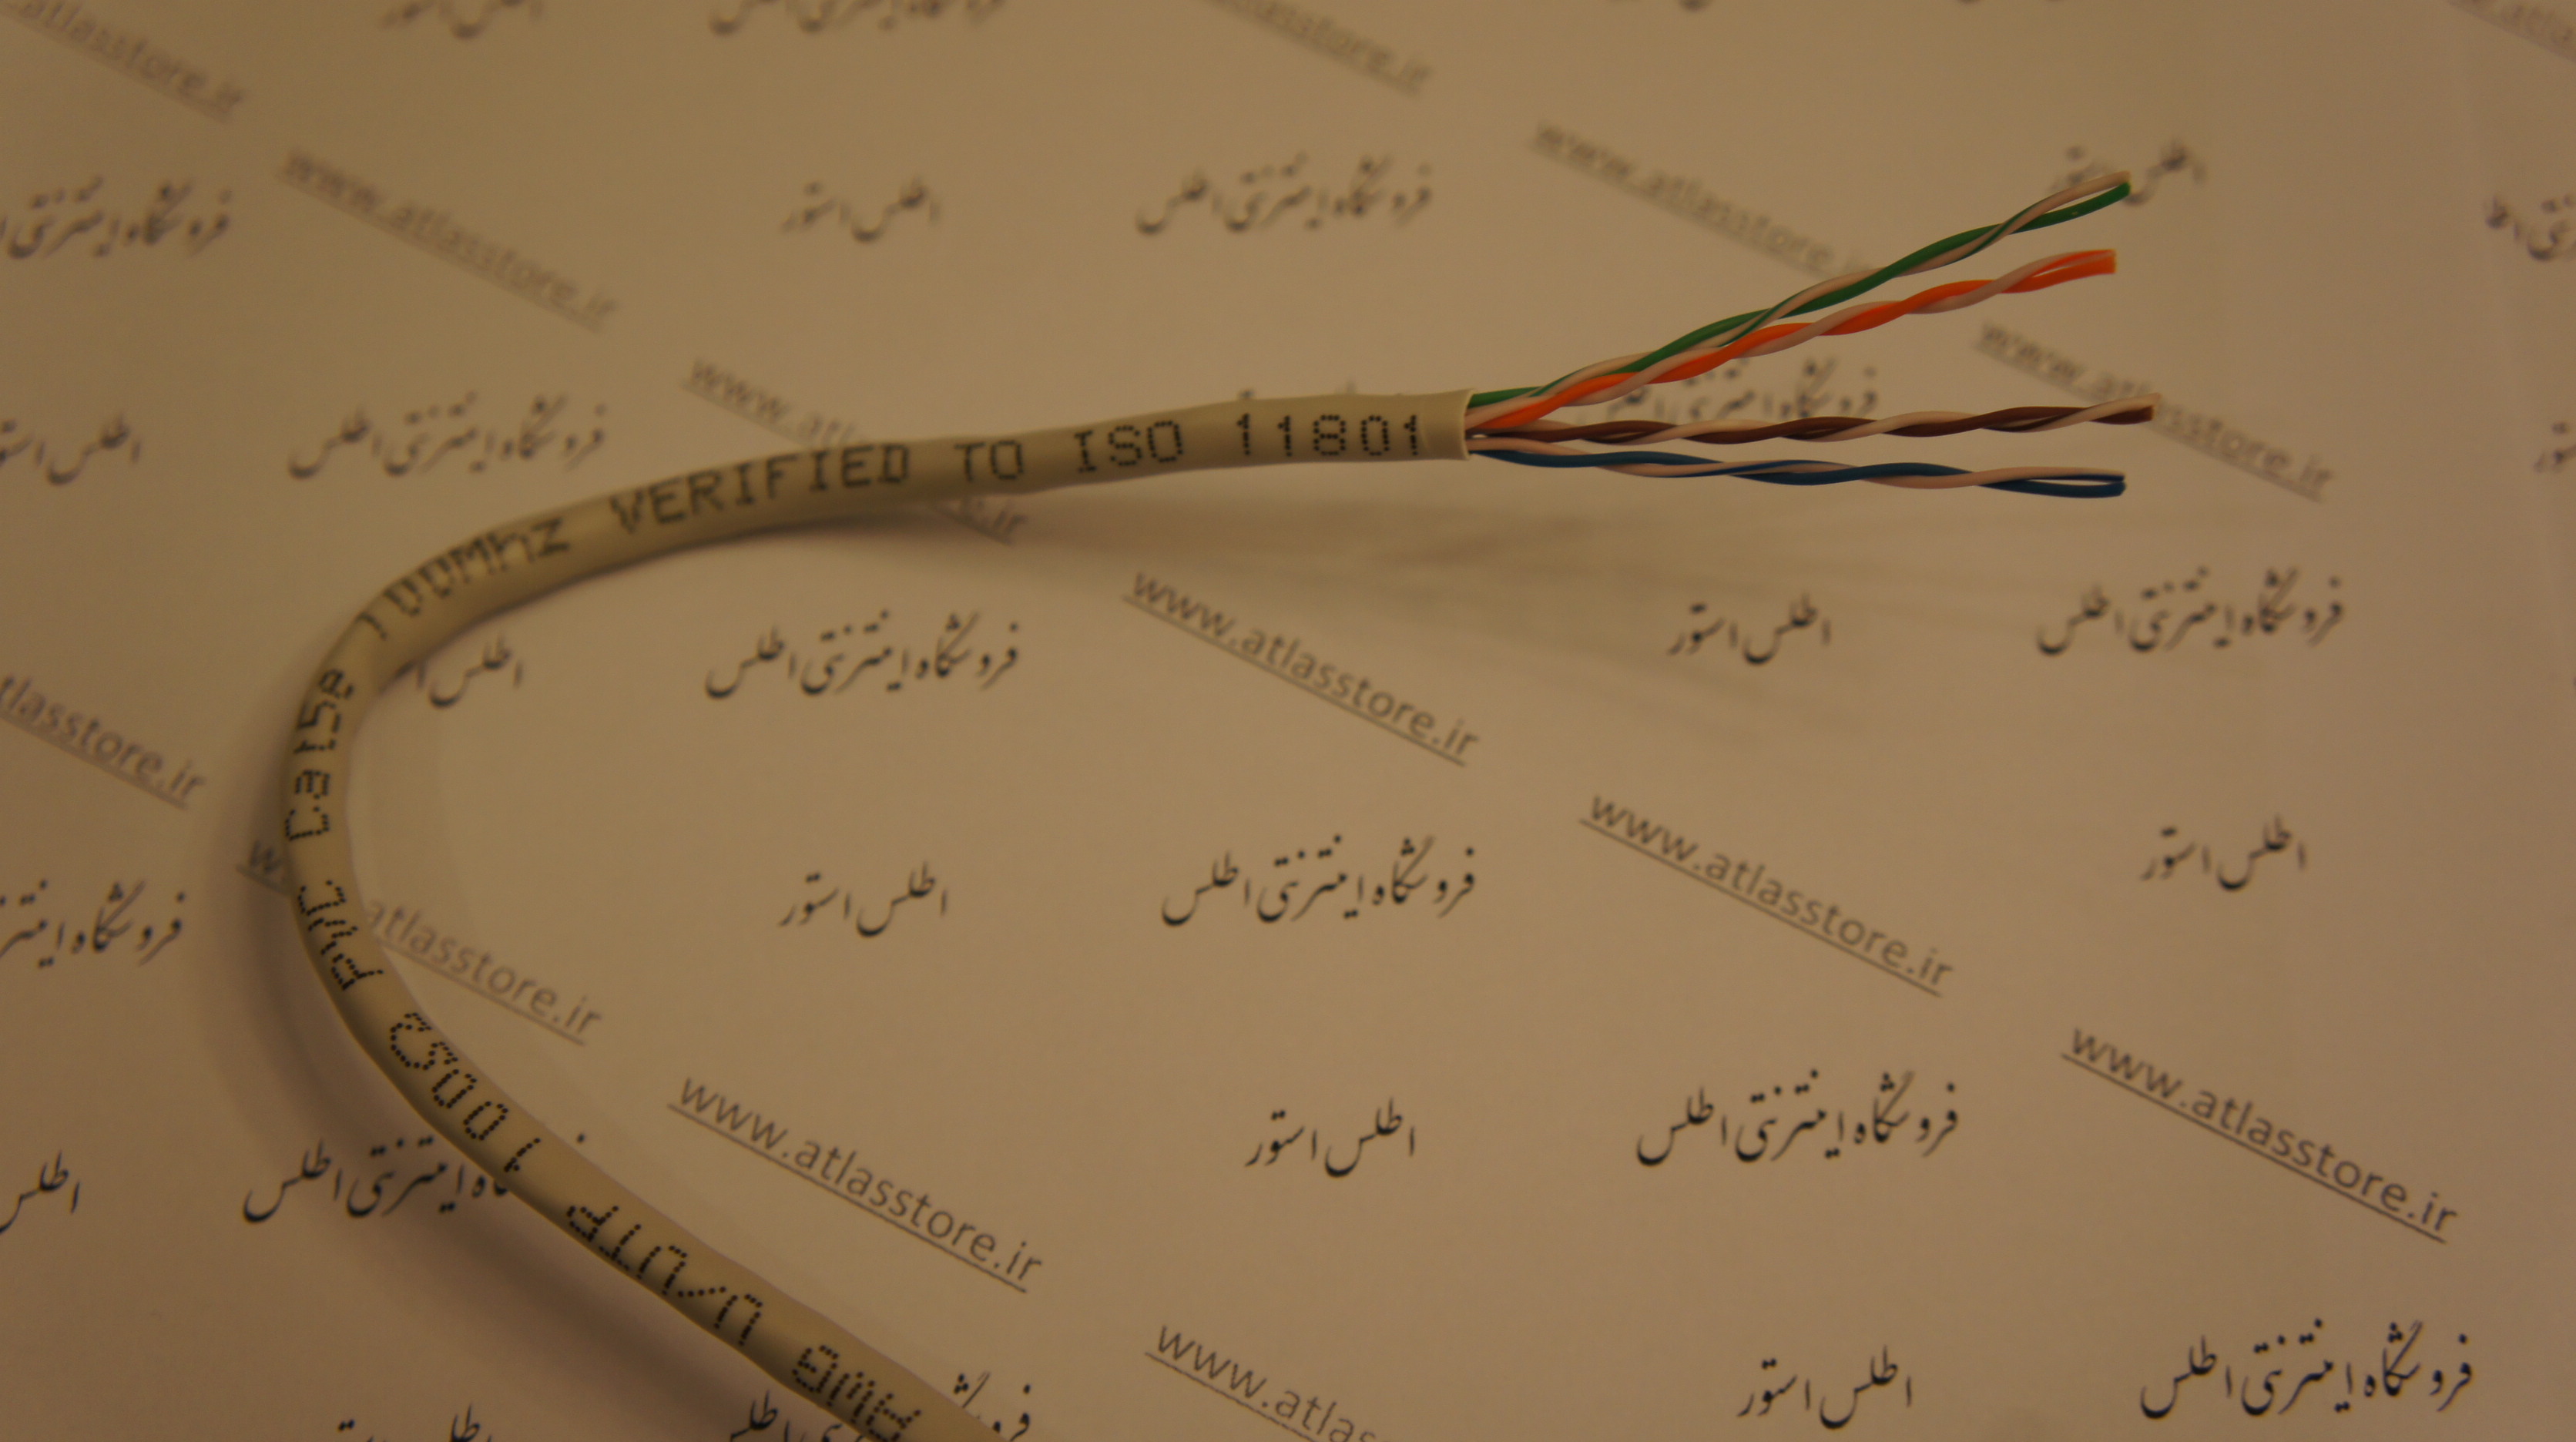 AWG U/UTP 100S2 PVC Cat5e 100Mhz VERIFIED TO ISO 11801
www.atlasstore.ir
اطلس استور
فروشگاه اینترنتی اطلس
www.atlasstore.ir
اطلس استور
فروشگاه اینترنتی اطلس
www.atlasstore.ir
فروشگاه اینترنتی اطلس
www.atlasstore.ir
اطلس استور
فروشگاه اینترنتی اطلس
اطلس استور
فروشگاه اینترنتی اطلس
www.atlasstore.ir
اطلس استور
فروشگاه اینترنتی اطلس
www.atlasstore.ir
اطلس استور
www.atlasstore.ir
www.atlasstore.ir
اطلس استور
فروشگاه اینترنتی اطلس
فروشگاه اینترنتی اطلس
اطلس استور
فروشگاه اینترنتی اطلس